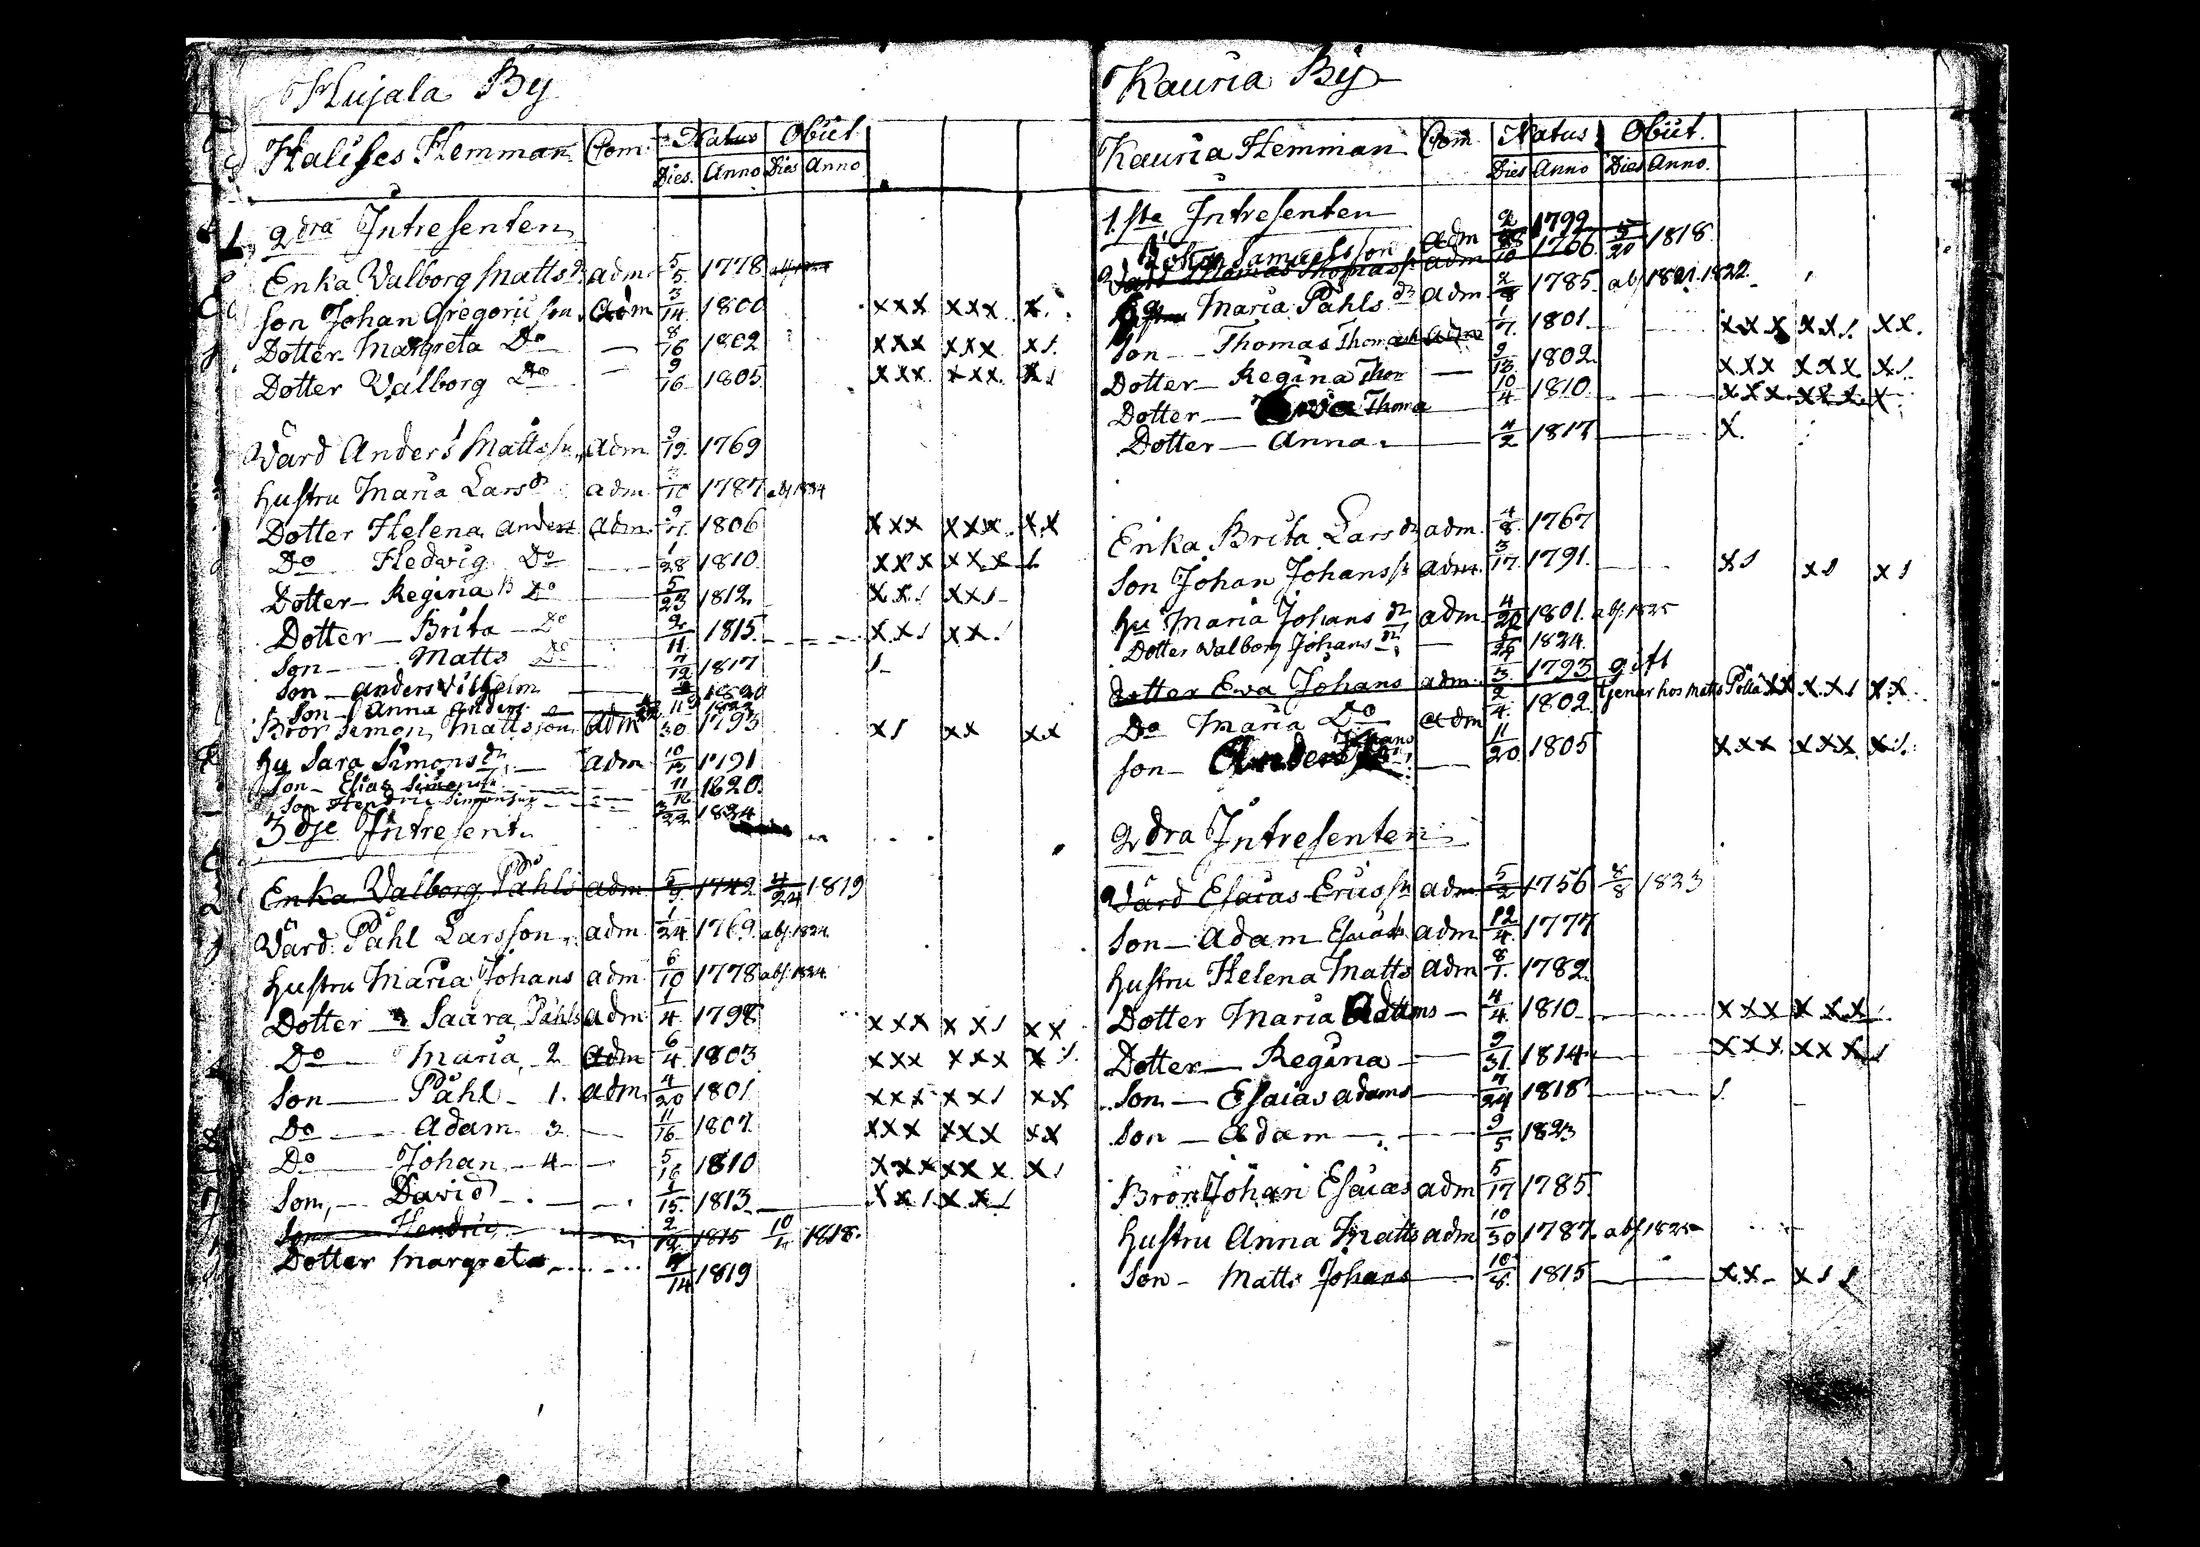 Hujala By
Halises Hemman Com. Natus Obiit
Dies. Anno Dies Anno
1, 2dra Intresenten
Enka Valborg Mattsd. adm 5/5 1778
Son Johan Gregorii son adm 3/14 1800 xxx xxx x.
Dotter Margreta Do — 8/16 1802 xxx xxx x/.
Dotter Valborg Do — 9/16 1805 xxx xxx x/
Värd Anders Mattss. adm 9/19 1769
Hustru Maria Larsdr adm 3/10 1787 abs 1824
Dotter Helena Anders adm 1806 xxx xxx xx
Do Hedvig Do — 1/28 1810 xxx xxx /
Dotter — Regina Do — 5/23 1812 xx/ xx/
Dotter — Brita — Do 1815 xx/ xx/
Son — Matts Do 7/12 1817 /
Son — Anders Vilhelm — 1820
Anna Anders
Bror Simon Mattsson adm 30 1793 x/ xx xx
Hu Sara Simonsdr — adm 1791
Son — Esias Simonss 11/16 1820.
Son Hendric Simonss 3/22 1824
3dje Intresent.
Enka Valborg Påhls adm 5/3 1742 4/24 1819
Värd Påhl Larsson adm 1/24 1769 abs. 1824
Hustru Maria Johans adm 6/10 1778 abs. 1824
Dotter — Saara Påhls adm 1/4 1798 xxx xx/ xx
Do — Maria 2 adm 6/4 1803 xxx xxx x/.
Son — Påhl — 1. adm 4/20 1801 xxx xx/ xx
Do — Adam 3 — 11/16 1807 xxx xxx xx
Do — Johan — 4 — 5/16 1810 xxx xxx x/
Son, — David — 1813 xx/ xx/
Son Hendric 2/12 1815 10/4 1818.
Dotter Margreta 1819
Kauria By
Kauria Hemman Com. Natus Obiit.
Dies Anno Dies Anno.
1.sta Intresenten
Johan Samuelsson adm 1799
Värd Thomas Thomass. adm 1766 5/20 1818
Maria Påhlsdr adm 2/8 1785 abs 1821. 1822
Son — Thomas Thomass 1/7 1801 xxx xx/ xx.
Dotter — Regina Thom — 9/13 1802 xxx xxx x/.
Dotter — Thoma 10/4 1810 xxx xxx x
Dotter — Anna — 1817 x.
Enka Brita Larsdr adm. 4/8 1767
Son Johan Johanss. adm. 3/17 1791. x/ x/ x/
Hu Maria Johansdr adm 4/20 1801. abs. 1825
Dotter Valborg Johansdr — 1824.
Dotter Ewa Johans adm. 1793 gift
Do Maria Do adm 2/4 1802 tjenar hos Matts xx xx/ xx
Son — Anders Johans — 11/20 1805 xxx xxx x/.
2dra Intresenten
Värd Esaias Ericss. adm 5/2 1756 8/8 1823
Son — Adam Esaias adm 12/4 1777
Hustru Helena Matts adm 8/1. 1782
Dotter Maria Adams — 4/4 1810 xxx xxx/
Dotter — Regina — 9/31. 1814 xxx xxx/
Son — Esaias Adams 1818 /
Son — Adam — 9/5 1823
Bror Johan Esaias adm 5/17 1785
Hustru Anna Matts adm 10/30 1787. abs 1825
Son — Matts Johans — 10/8. 1815 xx — x//